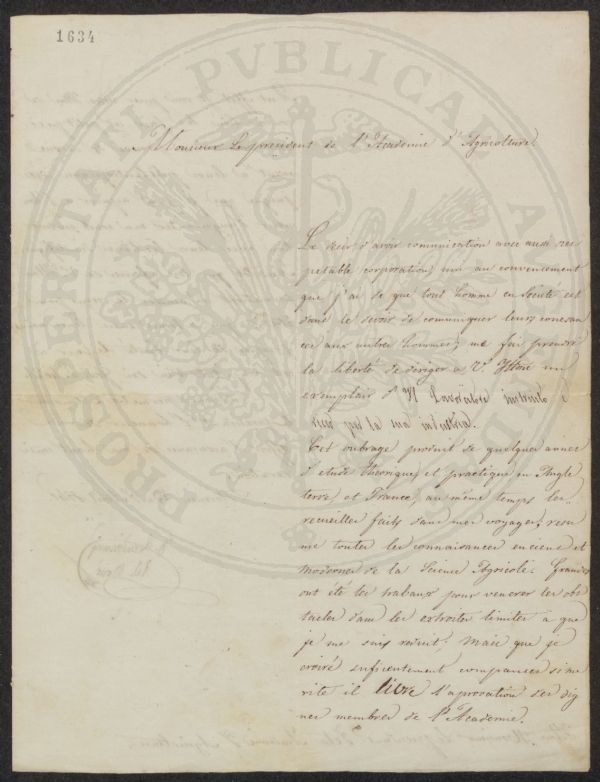 1634
Monsieur Le president de l'Academie d'Agricolture.
Le desir d'avoir comunication avec ausi res
petable corporation, uni au convencement
que j'ai de que tout homme en Societé est
dans le devoir de comuniquer leurs conesan
ces aux autres hommes, me fai prendre
la liberté de diriger a V.
exemplair d'
per la sua industria.
Cet oubrage produit de quelques annes
d'etude theorique, et practique en Angle
terre et France, au même temps les
recueilles faits dans mes voyages, resu
me toutes les connaisances enciens et
modernes de la Science Agricole. Grandes
ont été les trabaux pour vencrer les obs
tacles dans les extroites limites a que
je me suis reduit. Mais que je
croiré sufisentement compances si me
rite il livre l'aprovation des dig
nes membres de l'Academie.
PROSPERITATI PVBLICAE AVGENDAE